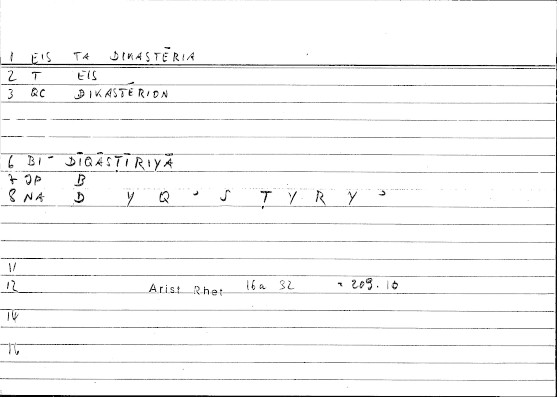 1 EIS TA DIKASTĒRIA
2 T EIS
3 QC DIKASTĒRION
6 BI- DĪQĀSṬĪRIYĀ
7 JP B
8 NA D Y Q ʾ S Ṭ Y R Y ʾ
11
12 Arist Rhet 16a 32 209.10
14
16